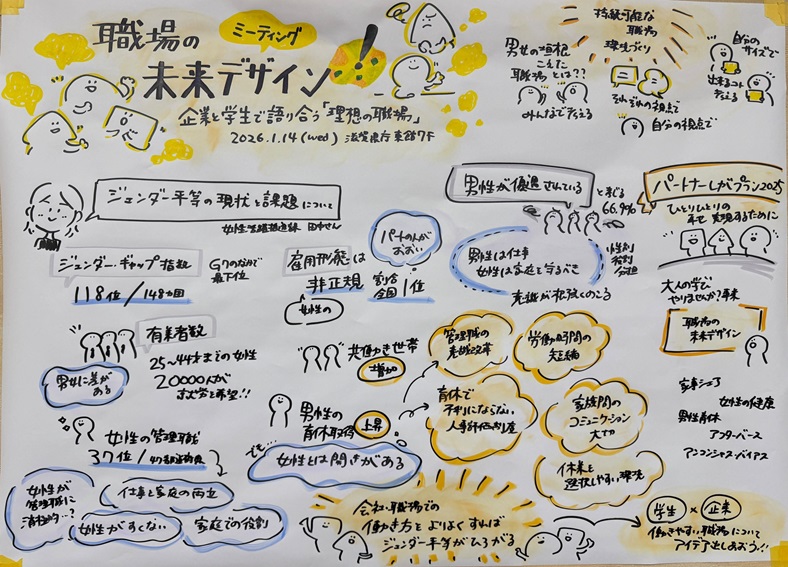 職場の
ミーティング
未来デザイン!
企業と学生で語り合う「理想の職場」
2026.1.14(wed) 滋賀県庁東館7F
男女の垣根
こえた
職場とは??
みんなで考える
持続可能な
職場
環境づくり
それぞれの視点で
自分の視点で
自分の
サイズで
出来ること
考える
ジェンダー平等の現状と課題について
女性活躍推進課 田中さん
ジェンダー・ギャップ指数
G7のなかで
最下位
118位/148ヵ国
有業者数
25〜44才までの女性
20000人が
まだ労を希望!!
男女に差が
ある
女性の管理職
37位/47都道府県
女性が
管理職に
消極的…?
仕事と家庭の両立
女性がすくない
家庭での役割
雇用形態は
非正規 割合
全国1位
女性の
パートの人が
おおい
共働き世帯
増加
男性の
育休取得 上昇
でも…
女性とは開きがある
男性が優遇されている と感じる
66.9%
男性は仕事
女性は家庭を守るべき
性別
役割
分担
意識が根強くのこる
管理職の
意識改革
労働時間の
短縮
育休で
不利にならない
人事評価制度
家族間の
コミュニケーション
大切
休業を
選択しやすい環境
会社・職場での
働き方をよりよくすれば
ジェンダー平等がひろがる
パートナーしがプラン2025
ひとりひとりの
幸せ 実現するために
大人の学び
やりませんか?事業
職場の
未来デザイン
家事シェア
女性の健康
男性育休
アフターバース
アンコンシャス・バイアス
学生×企業
働きやすい職場について
アイデア出しあおう!!